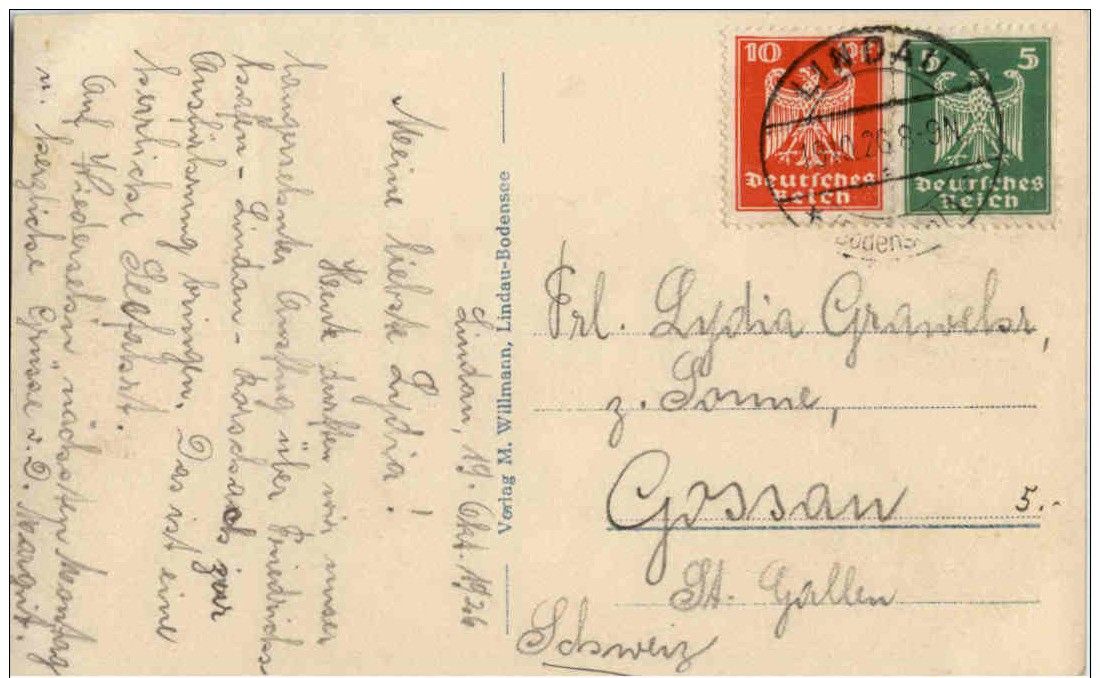 Lindau, 19. Okt. 1926
Meine liebste Lydia!
Heute durften wir unser
langersehnter Ausflug über Friedrichs
hafen - Lindau - Rorschach zur
Ausführung bringen. Das ist eine
herrliche Seefahrt.
Auf „Wiedersehn" nächsten Montag
u. herzliche Grüsse v. D. Margrit.
Verlag M. Willmann, Lindau-Bodensee
10 Pf
Deutsches
Reich
5
Deutsches
Reich
LINDAU
.26.8-9N
Bodensee
Frl. Lydia Grawehr,
z. Sonne,
Gossau
5.-
St. Gallen
Schweiz